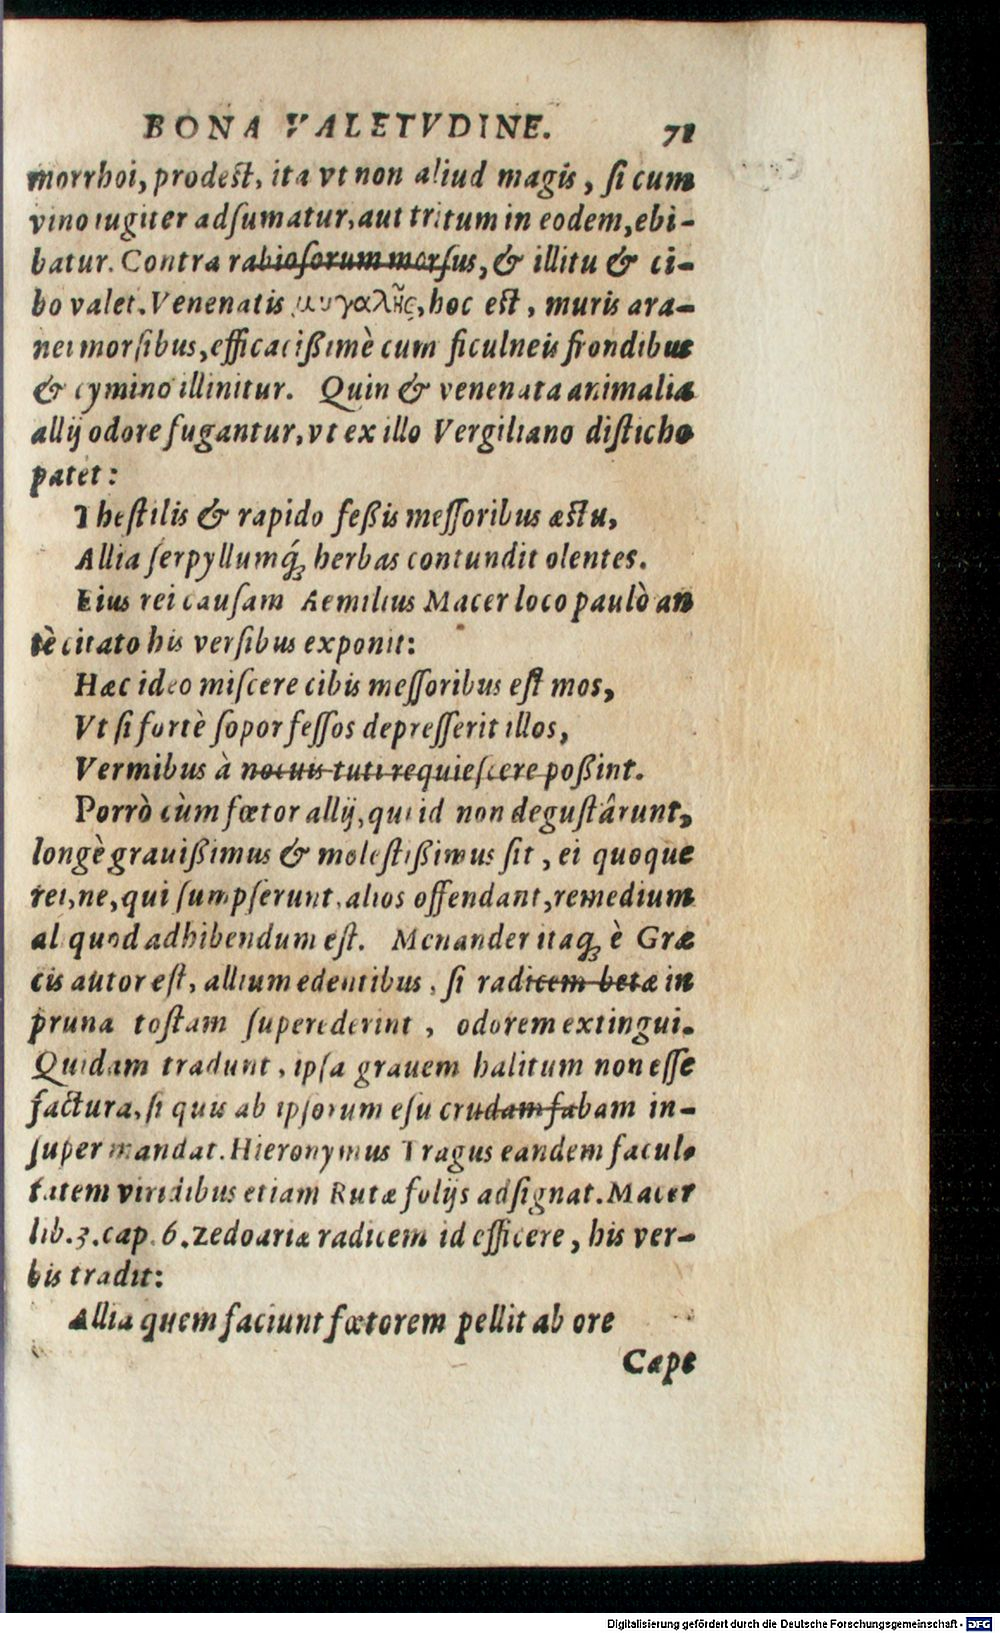 BONA VALETVDINE. 71
morrhoi, prodest, ita vt non aliud magis, si cum
vino iugiter adsumatur, aut tritum in eodem, ebi-
batur. Contra rabiosorum morsus, & illitu & ci-
bo valet. Venenatis μυγαλῆς, hoc est, muris ara-
nei morsibus, efficacißimè cum ficulneis frondibus
& cymino illinitur. Quin & venenata animalia
allij odore fugantur, vt ex illo Vergiliano disticho
patet:
Thestilis & rapido feßis messoribus æstu,
Allia serpyllumq́; herbas contundit olentes.
Eius rei causam Aemilius Macer loco paulò an
tè citato his versibus exponit:
Hæc ideo miscere cibis messoribus est mos,
Vt si fortè sopor fessos depresserit illos,
Vermibus à nocuis tuti requiescere poßint.
Porrò cùm fœtor allij, qui id non degustârunt,
longè grauißimus & molestißimus sit, ei quoque
rei, ne, qui sumpserunt, alios offendant, remedium
al quod adhibendum est. Menander itaq; è Græ
cis autor est, allium edentibus, si radicem betæ in
pruna tostam superederint, odorem extingui.
Quidam tradunt, ipsa grauem halitum non esse
factura, si quis ab ipsorum esu crudam fabam in-
super mandat. Hieronymus Tragus eandem facul-
tatem viridibus etiam Rutæ folijs adsignat. Macer
lib. 3. cap. 6. zedoariæ radicem id efficere, his ver-
bis tradit:
Allia quem faciunt fœtorem pellit ab ore
Cæpe
Digitalisierung gefördert durch die Deutsche Forschungsgemeinschaft - DFG